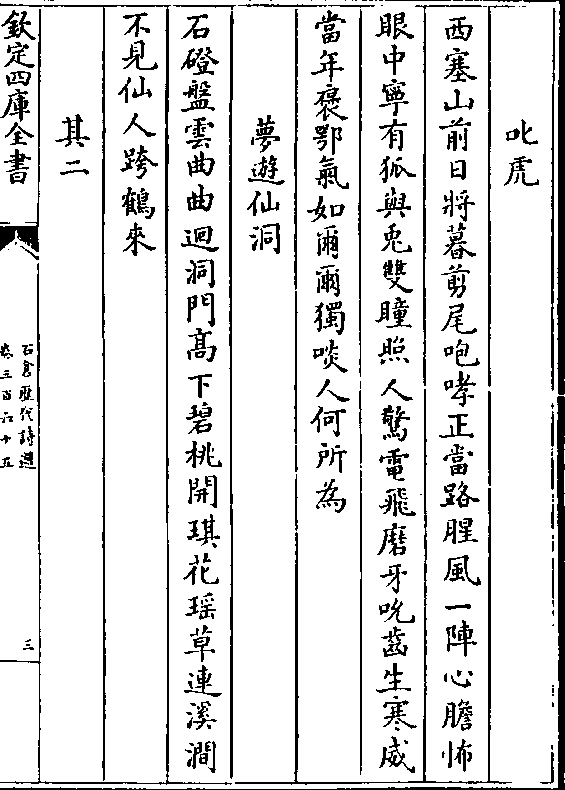 叱虎
西塞山前日將暮剪尾咆哮正當路腥風一陣心膽怖
眼中寧有狐與兎雙瞳照人驚電飛磨牙吮齒生寒威
當年褒鄂氣如爾爾獨啖人何所為
夢遊仙洞
石磴盤雲曲曲迴洞門髙下碧桃開琪花瑶草連溪澗
不見仙人跨鶴來
其二
欽定四庫全書
石倉歷代詩選
卷三百六十五
三